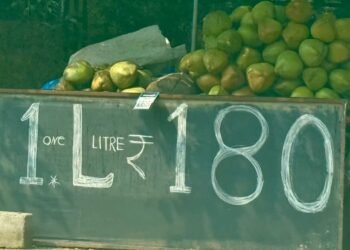 1. ONE LITRE ₹ 180